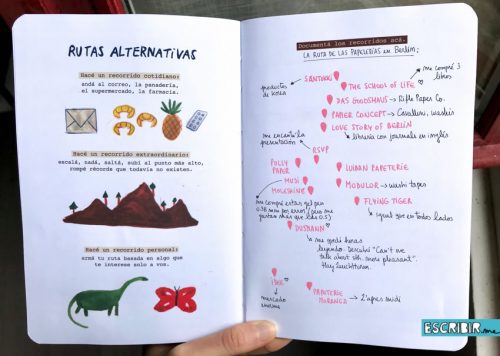 RUTAS ALTERNATIVAS
Hacé un recorrido cotidiano:
andá al correo, la panadería,
el supermercado, la farmacia.
Hacé un recorrido extraordinario:
escalá, nadá, saltá, subí al punto más alto,
rompé récords que todavía no existen.
Hacé un recorrido personal:
armá tu ruta basada en algo que
te interese solo a vos.
Documentá los recorridos acá.
LA RUTA DE LAS PAPELERÍAS en Berlín:
SANTOKU
productos de Korea
THE SCHOOL OF LIFE
me compré 3
libros
DAS GOODSHAUS → Rifle Paper Co.
PAPER CONCEPT → Cavallini, washis
LOVE STORY OF BERLIN
librería con journals en inglés
me encanta la
presentación
RSVP
POLLY
PAPER
LUIBAN PAPETERIE
MUJI
MOLESKINE
MODULOR → washi tapes
FLYING TIGER
igual que en todos lados
me compré estas gel pen
0.38 mm por error (pero me
gustan más que las 0.5)
DUSSMANN
me quedé horas
leyendo. Descubrí "Can't we
talk about sth. more pleasant".
Hay
mercado
enorme
PAPETERIE
→ Tapes midi
ESCRIBIR.me